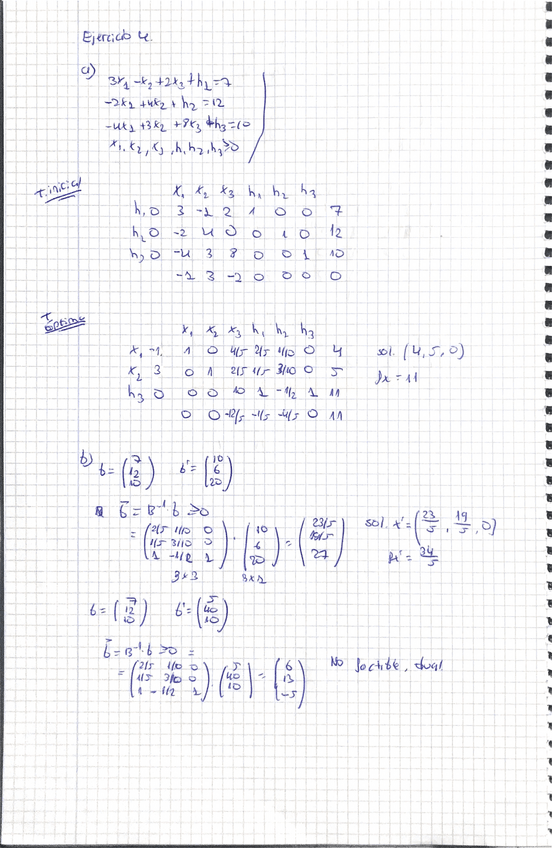 Ejercicio 4.
a)
3x₁ -x₂ +2x₃ +h₁ =7
-2x₁ +4x₂ + h₂ =12
-4x₁ +3x₂ +8x₃ +h₃=10
x₁, x₂, x₃, h₁, h₂, h₃≥0
T. inicial
x₁ x₂ x₃ h₁ h₂ h₃
h₁ 0 3 -1 2 1 0 0 7
h₂ 0 -2 4 0 0 1 0 12
h₃ 0 -4 3 8 0 0 1 10
-1 3 -2 0 0 0 0
T. óptima
x₁ x₂ x₃ h₁ h₂ h₃
x₁ -1. 1 0 4/5 2/5 1/10 0 4 sol. (4, 5, 0)
x₂ 3 0 1 2/5 1/5 3/10 0 5 = 11
h₃ 0 0 0 10 1 -1/2 1 11
0 0 -12/5 -1/5 -4/5 0 11
b)
b = (7 12 10) b' = (10 6 20)
b̄ = B⁻¹ b ≥0
= (2/5 1/10 0 1/5 3/10 0 1 -1/2 1) · (10 6 20) = (23/5 19/5 27) sol. x' = (23/5, 19/5, 0)
3x3 3x1 = 34/5
b = (7 12 10) b' = (5 40 10)
b̄ = B⁻¹·b ≥0 =
= (2/5 1/10 0 1/5 3/10 0 1 -1/2 1) · (5 40 10) = (6 13 -5) No factible, dual